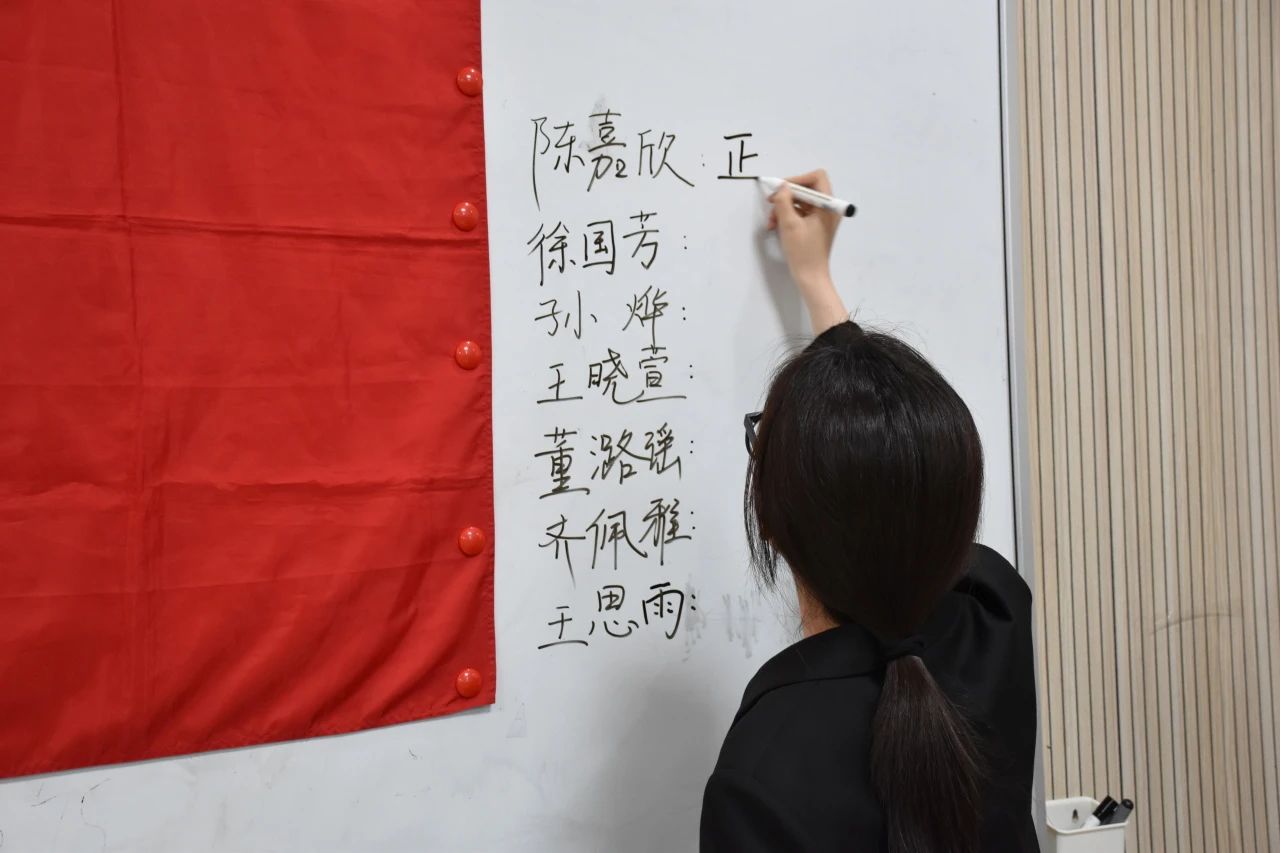 陈嘉欣：正
徐国芳：
孙小烨：
王晓萱：
董潞瑶：
齐佩雅：
王思雨：